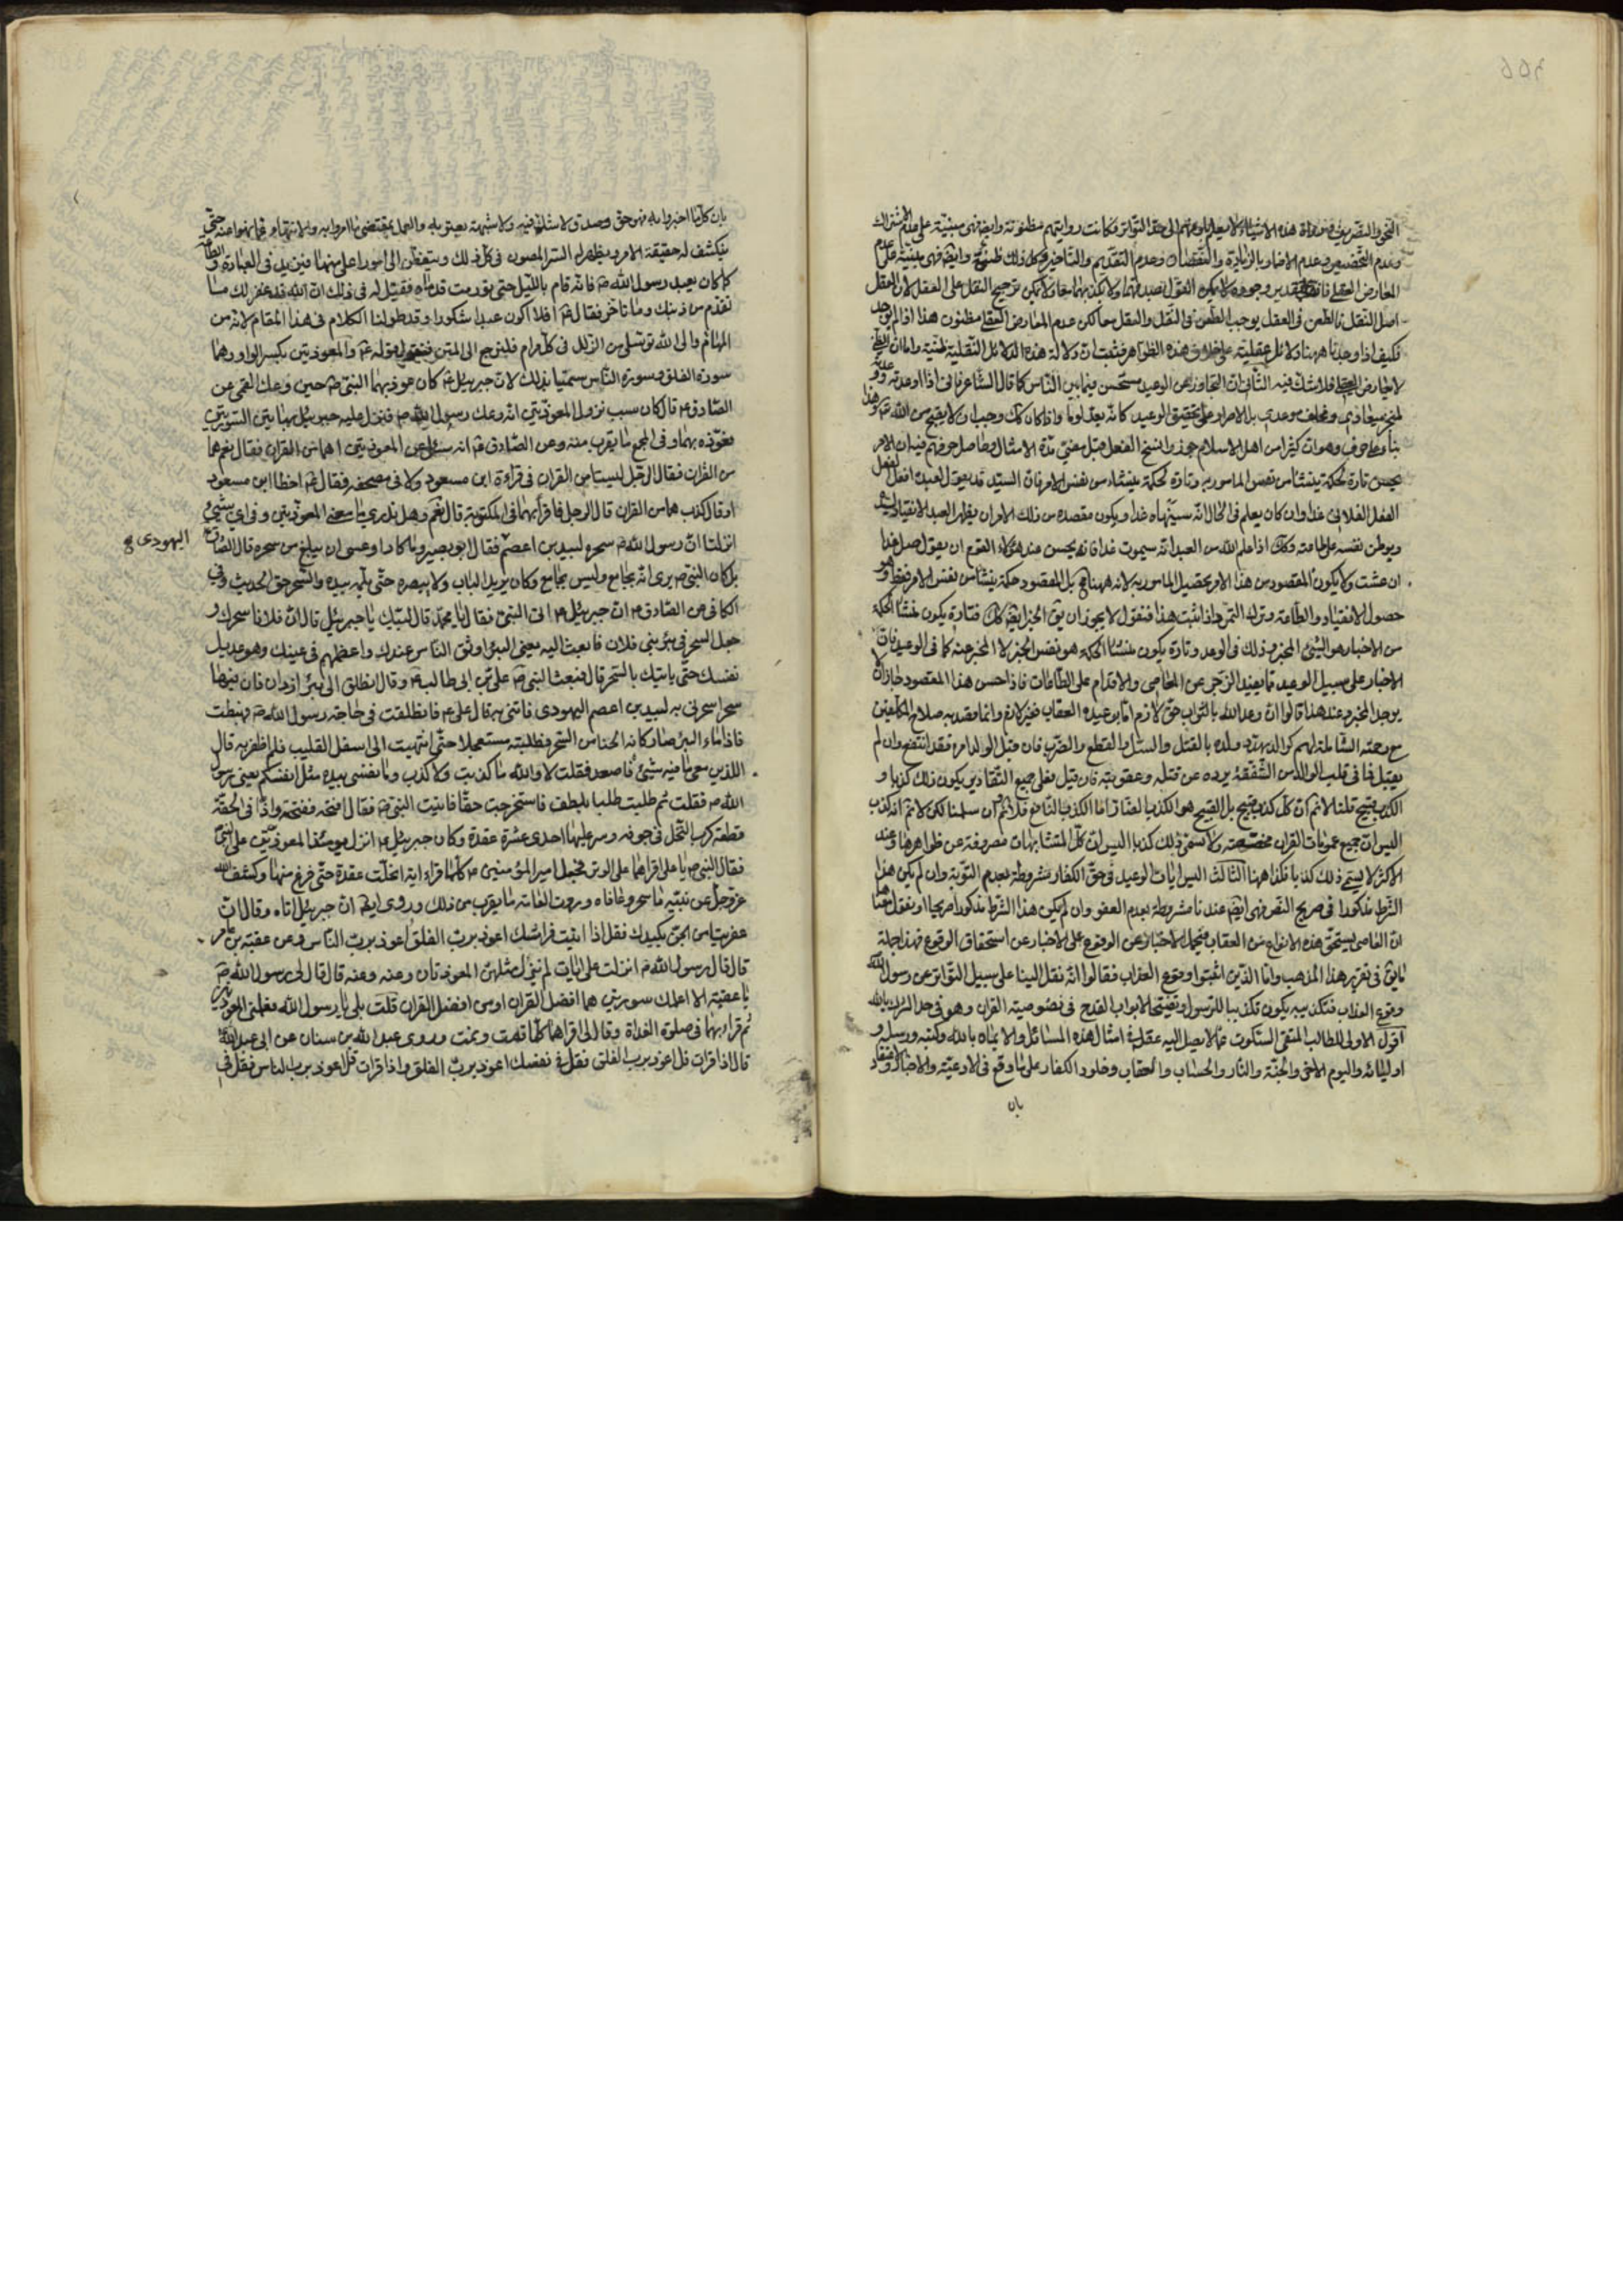 النحو والتصريف فمن رواة هذه الاشياء لا يعلم بلوغهم الى حد التواتر فكانت روايتهم مظنونة وايضا فهي مبنية على عدم الاشتراك
وعدم التخصيص وعدم الاضمار بالزيادة والنقصان وعدم التقديم والتأخير وكل ذلك ظنية وايضا فهي مبنية على عدم
المعارض العقلي فانه بتقدير وجوده لا يمكن القول بصدقهما ولا بكذبهما معا ولا يمكن ترجيح النقل على العقل لان العقل
اصل النقل فالطعن في العقل يوجب الطعن في النقل والعقل معا لكن عدم المعارض العقلي مظنون هذا اذا لم يوجد
فكيف اذا وجدنا ههنا دلائل عقلية على خلاف هذه الظواهر فثبت ان دلالة هذه الدلائل النقلية ظنية واما ان الظني
لا يعارض اليقيني فلا شك فيه الثاني ان التجاوز عن الوعيد مستحسن فيما بين الناس كما قال الشاعر فاني اذا اوعدته او وعدته
لمنجز ميعادي ومخلف موعدي بل الاصرار على تحقيق الوعيد كانه يعد لوما واذا كان كك وجب ان لا يقبح من الله عم وهذا
بناء على حرف وهو ان كثيرا من اهل الاسلام جوزوا نسخ الفعل قبل مضي مدة الامتثال وحاصل حرفهم فيه ان الامر
يحسن تارة لحكمة ينشأ من نفس المأمور به وتارة لحكمة ينشاء من نفس الامر فان السيد قد يقول لعبده افعل الفعل
الفعل الفلاني غدا وان كان يعلم في الحال انه سينهاه غدا ويكون مقصده من ذلك الامر ان يظهر العبد الانقياد لسيده
ويوطن نفسه على طاعته وكك اذا علم الله من العبد انه سيموت غدا فانه يحسن عند هؤلاء القوم ان يقول صل غدا
ان عشت ولا يكون المقصود من هذا الامر تحصيل المأمور به لانه ههنا مح بل المقصود حكمة ينشأ من نفس الامر فقط وهو
حصول الانقياد والطاعة وترك التمرد اذا ثبت هذا فنقول لا يجوز ان يق الخبر ايضا كك فتارة يكون منشأ الحكمة
من الاخبار هو الشيء المخبر وذلك في الوعد وتارة يكون منشأ الحكمة هو نفس الخبر لا المخبر عنه كما في الوعيد فان
الاخبار على سبيل الوعيد مما يفيد الزجر عن المعاصي والاقدام على الطاعات فاذا حصل هذا المقصود جاز ان لا
يوجد المخبر وعند هذا قالوا ان وعد الله بالثواب حق لازم اما توعيده بالعقاب فغير لازم وانما قصد به صلاح المكلفين
مع رحمته الشاملة لهم كالوالد يهدد ولده بالقتل والسمل والقطع والضرب فان قبل الولد امره فقد انتفع وان لم
يقبل فما في قلب الوالد من الشفقة يرده عن قتله وعقوبته فان قيل فعلى جميع التقادير يكون ذلك كذبا و
الكذب قبيح قلنا لا نم ان كل كذب قبيح بل القبيح هو الكذب الضار اما الكذب النافع فلا ثم ان سلمنا لكن لا نم انه كذب
اليس ان جميع عمومات القران مخصصة ولا تسمى ذلك كذبا اليس ان كل المتشابهات مصروفة عن ظواهرها وعند
الاكثر لا يسمى ذلك كذبا فكذا ههنا الثالث اليس ايات الوعيد في حق الكفار مشروطة بعدم التوبة وان لم يكن هذا
الشرط مذكورا في صريح النص فهي ايضا عندنا مشروطة بعدم العفو وان لم يكن هذا الشرط مذكورا صريحا او نقول معناه
ان العاصي يستحق هذه الانواع من العقاب فيحمل الاخبار عن الوقوع على الاخبار عن استحقاق الوقوع فهذا جملة
ما يق في تقرير هذا المذهب واما الذين اثبتوا وقوع العذاب فقالوا انه نقل الينا على سبيل التواتر عن رسول الله ص
وقوع العذاب فتكذيبه يكون تكذيبا للرسول وتفتيحا لابواب القدح في خصوصية القران وهو في حد الشرك بالله
اقول الاولى للطالب المتقي السكوت عما لا يصل اليه عقله في امثال هذه المسائل والايمان بالله وكتبه ورسله و
اوليائه واليوم الاخر والجنة والنار والحساب والعقاب وخلود الكفار على ما وقع في الادعية والاخبار والاعتقاد
بان
بان كلما اخبروا به فهو حق وصدق ولا شك فيه ولا شبهة يعتريه والعمل بمقتضى ما امروا به والانتهاء عما نهوا عنه حتى
ينكشف له حقيقة الامر ويظهر له السر المصون في كل ذلك ويتفطن الى امور اعلى منها فيزيد في العبادة والطاعة
كما كان يعبد رسول الله ص فانه قام بالليل حتى تورمت قدماه فقيل له في ذلك ان الله قد غفر لك ما
تقدم من ذنبك وما تأخر فقال ص افلا اكون عبدا شكورا وقد طولنا الكلام في هذا المقام لانه من
المهام والى الله نتوسل من الزلل في كل مرام فلنرجع الى المتن فنقول قوله عم والمعوذتين بكسر الواو وهما
سورة الفلق وسورة الناس سميتا بذلك لان جبرئيل عم كان عوذ بهما النبي ص حين وعك القمي عن
الصادق عم قال كان سبب نزول المعوذتين انه وعك رسول الله ص فنزل عليه جبرئيل بهاتين السورتين
فعوذه بهما وفي المجمع ما يقرب منه وعن الصادق عم انه سئل عن المعوذتين اهما من القران فقال نعم هما
من القران فقال الرجل ليستا من القران في قراءة ابن مسعود ولا في مصحفه فقال عم اخطأ ابن مسعود
او قال كذب هما من القران قال الرجل فأقرأ بهما في المكتوبة قال نعم وهل تدري ما معنى المعوذتين وفي اي شيء
انزلتا ان رسول الله ص سحره لبيد بن اعصم فقال ابو بصير وما كاد او عسى ان يبلغ من سحره قال الصادق عم
اليهودي
بل كان النبي ص يرى انه يجامع وليس يجامع وكان يريد الباب ولا يبصره حتى يلمسه بيده والسحر حق الحديث وفي
الكافي عن الصادق عم ان جبرئيل عم اتى النبي ص فقال يا محمد قال لبيك يا جبرئيل قال ان فلانا سحرك و
جعل السحر في بئر بني فلان فابعث اليه يعني البئر اوثق الناس عندك واعظمهم في عينك وهو عديل
نفسك حتى يأتيك بالسحر قال فبعث النبي ص علي بن ابي طالب عم وقال انطلق الى بئر ازوان فان فيها
سحرا سحرني به لبيد بن اعصم اليهودي فاتني به قال علي عم فانطلقت في حاجة رسول الله ص فهبطت
فاذا ماء البئر صار كأنه الحناء من السحر فطلبته مستعجلا حتى انتهيت الى اسفل القليب فلم اظفر به قال
الذين معي ما فيه شيء فاصعد فقلت لا والله ما كذبت ولا كذب وما نفسي بيده مثل انفسكم يعني رسول
الله ص فقلت ثم طلبت طلبا بلطف فاستخرجت حقا فاتيت النبي ص فقال افتحه ففتحته واذا في الحقة
قطعة كرب النخل في جوفه وتر عليها احدى عشرة عقدة وكان جبرئيل عم انزل يومئذ المعوذتين على النبي
فقال النبي ص يا علي اقراهما على الوتر فجعل امير المؤمنين عم كلما قراء اية انحلت عقدة حتى فرغ منها وكشف الله
عز وجل عن نبيه ما سحر وعافاه وروت العامة ما يقرب من ذلك وروي ايضا ان جبرئيل اتاه وقال ان
عفريتا من الجن يكيدك فقل اذا اتيت فراشك اعوذ برب الفلق اعوذ برب الناس وعن عقبة بن عامر
قال قال رسول الله ص انزلت علي ايات لم ينزل مثلهن المعوذتان وعنه وعنه قال قال لي رسول الله ص
يا عقبة الا اعلمك سورتين هما افضل القران او من افضل القران قلت بلى يا رسول الله فعلمني المعوذتين
ثم قرأ بهما في صلوة الغداة وقال لي اقراهما كلما قمت ونمت وروى عبد الله بن سنان عن ابي عبد الله ع
قال اذا قرات قل اعوذ برب الفلق فقل في نفسك اعوذ برب الفلق واذا قرات قل اعوذ برب الناس فقل في